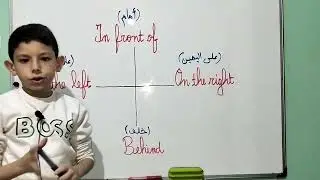 (أمام)
In front of
(على اليمين)
the left
On the right
(خلف)
Behind
BOSS